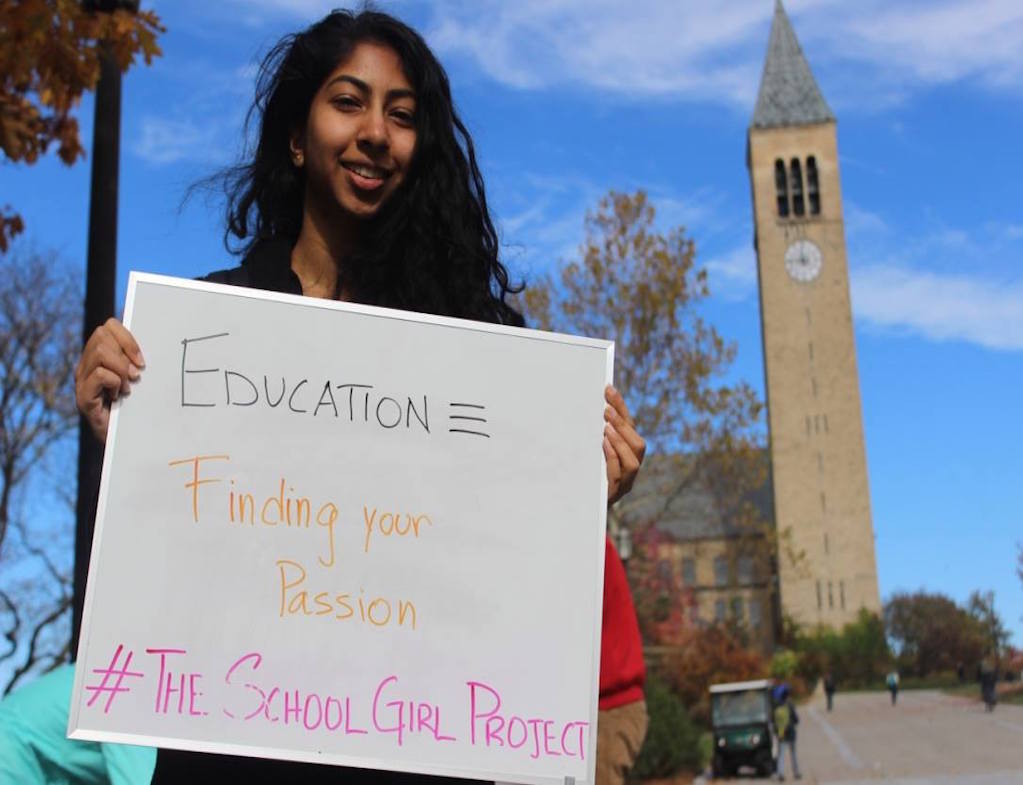 EDUCATION ≡
Finding your
Passion
#THE SCHOOL GIRL PROJECT